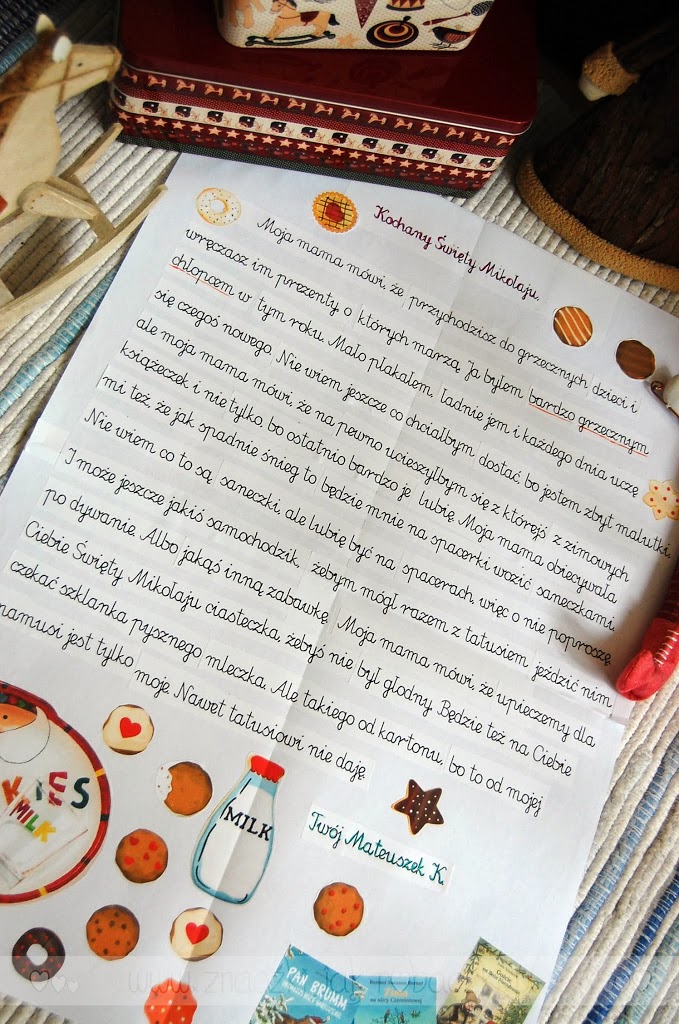 Kochany Święty Mikołaju,
Moja mama mówi, że przychodzisz do grzecznych dzieci i
wręczasz im prezenty o których marzą. Ja byłem bardzo grzecznym
chłopcem w tym roku. Mało płakałem, ładnie jem i każdego dnia uczę
się czegoś nowego. Nie wiem jeszcze co chciałbym dostać bo jestem zbyt malutki,
ale moja mama mówi, że na pewno ucieszyłbym się z którejś z zimowych
książeczek i nie tylko, bo ostatnio bardzo je lubię. Moja mama obiecywała
mi też, że jak spadnie śnieg to będzie mnie na spacerki wozić saneczkami.
Nie wiem co to są saneczki, ale lubię być na spacerach, więc o nie poproszę.
I może jeszcze jakiś samochodzik, żebym mógł razem z tatusiem jeździć nim
po dywanie. Albo jakąś inną zabawkę. Moja mama mówi, że upieczemy dla
Ciebie Święty Mikołaju ciasteczka, żebyś nie był głodny. Będzie też na Ciebie
czekać szklanka pysznego mleczka. Ale takiego od kartonu, bo to od mojej
mamusi jest tylko moje. Nawet tatusiowi nie daję.
KIES
MILK
MILK
Twój Mateuszek K.
PAN BRUMM